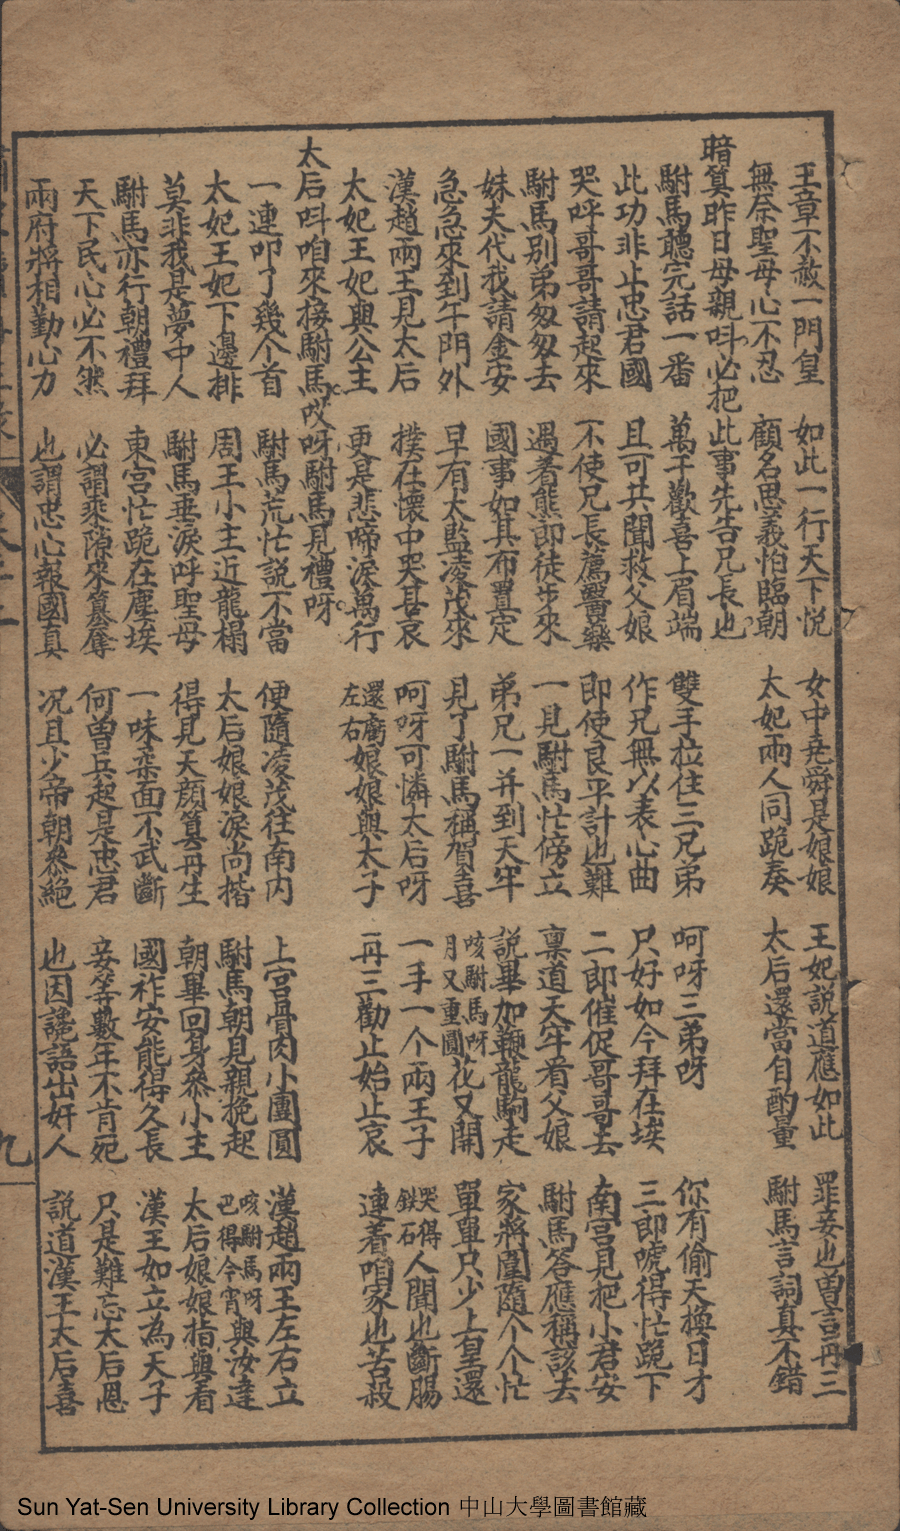 王章不赦一門皇 如此一行天下悅 女中堯舜是娘娘 王妃說道應如此 罪妾也曾言再三
無奈聖母心不忍 顧名思義怕臨朝 太妃兩人同跪奏 太后還當自酌量 駙馬言詞真不錯
暗箅昨日母親呌必把此事先告兄長也
駙馬聽完話一番 萬千歡喜上眉端 雙手拉住三兄弟 呵呀三弟呀 你有偷天換日才
此功非止忠君國 且可共聞救父娘 作兄無以表心曲 只好如今拜在埃 三郎唬得忙跪下
哭呼哥哥請起來 不使兄長薦醫藥 即使良平計也難 二郎催促哥哥去 南宮見把小君安
駙馬別弟匆匆去 遇着熊郎徒步來 一見駙馬忙傍立 稟道天牢看父娘 駙馬答應稱該去
妹夫代我請金安 國事如其布置定 弟兄一并到天牢 說畢加鞭龍駒走 家將圍隨个个忙
急急來到午門外 早有太監凌茂來 見了駙馬稱賀喜 咳駙馬呀月又重圓花又開 單單只少上皇還
漢趙兩王見太后 撲在懷中哭甚哀 呵呀可憐太后呀 一手一个兩王子 哭得鉄石人聞也斷腸
太妃王妃與公主 更是悲啼淚萬行 還有左右娘娘與太子 再三勸止始止哀 連着咱家也苦殺
太后呌咱來接駙馬哎呀駙馬見禮呀
一連叩了幾个首 駙馬荒忙說不當 便隨凌茂往南内 上宮骨肉小團圓 漢趙兩王左右立
太妃王妃下邊排 周王小主近龍榻 太后娘娘淚尚揩 駙馬朝見親挽起 咳駙馬呀巴得今宵與汝逢
莫非我是夢中人 駙馬垂淚呼聖母 得見天顏箅再生 朝畢回身參小主 太后娘娘指與看
駙馬亦行朝禮拜 東宮忙跪在塵埃 一味柔面不武斷 國祚安能得久長 漢王如立為天子
天下民心必不然 必謂乘隙來篡奪 何曾兵起是忠君 妾等數年不肯死 只是難忘太后恩
兩府將相勤心力 也謂忠心報國真 况且少帝朝參絕 也因讒語出奸人 說道漢王太后喜
九
Sun Yat-Sen University Library Collection 中山大學圖書館藏